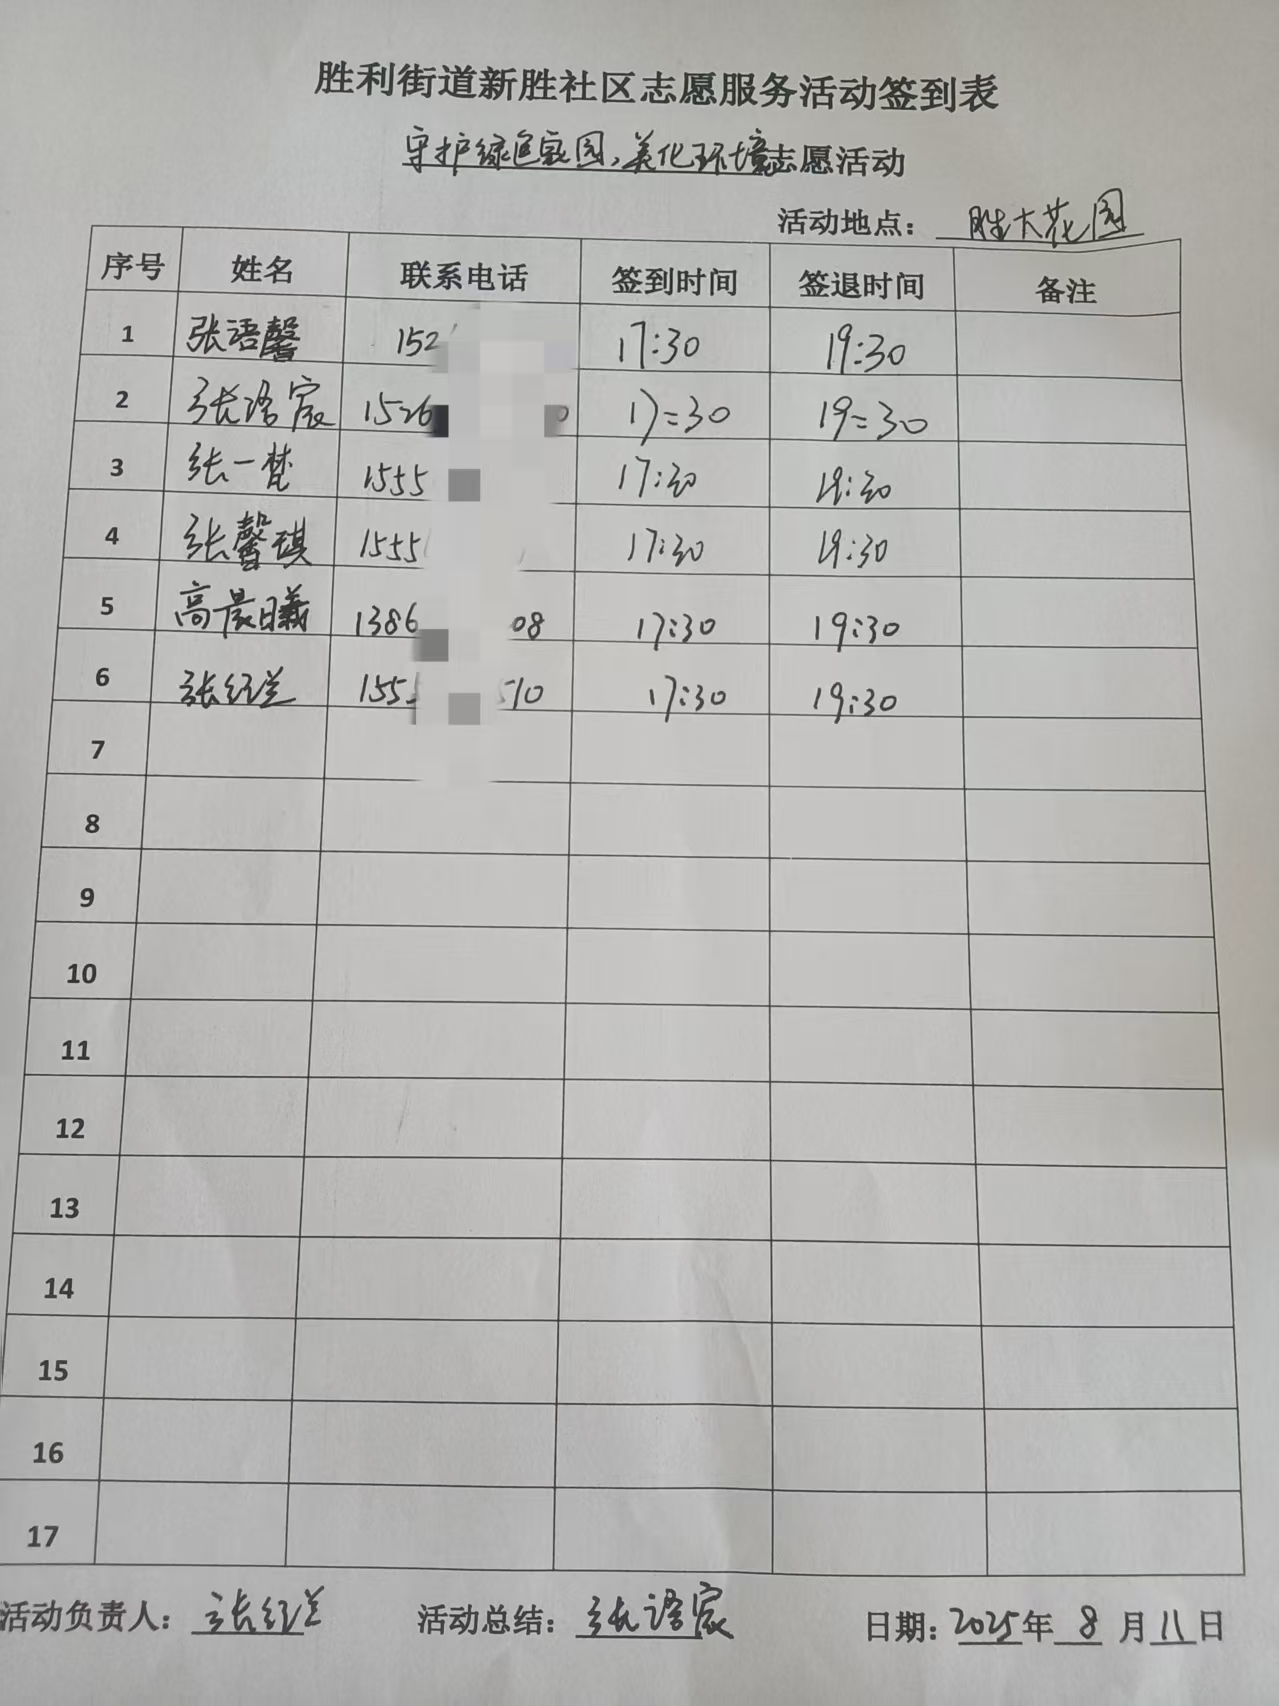 胜利街道新胜社区志愿服务活动签到表
守护绿色家园,美化环境志愿活动
活动地点: 胜大花园
序号 姓名 联系电话 签到时间 签退时间 备注
1 张语馨 152 17:30 19:30
2 张语宸 1526 0 17:30 19:30
3 张一梵 1555 17:30 19:30
4 张馨琪 1555 17:30 19:30
5 高晨曦 1386 08 17:30 19:30
6 张红兰 155 510 17:30 19:30
7
8
9
10
11
12
13
14
15
16
17
活动负责人: 张红兰 活动总结: 张语宸 日期: 2025年 8 月 11 日